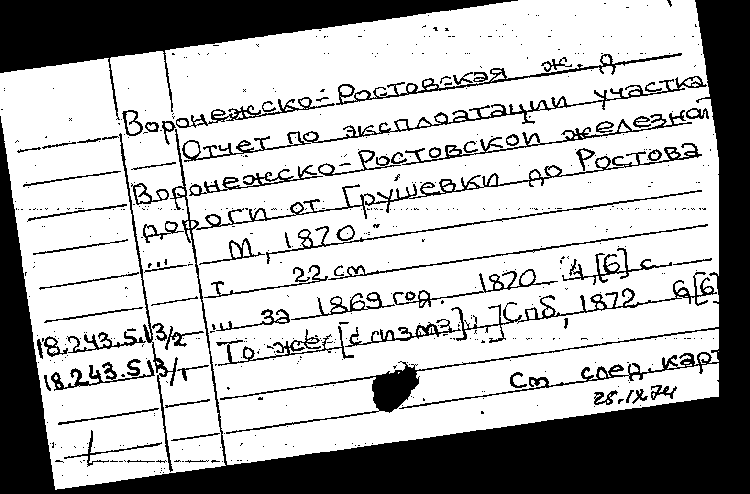 Воронежско-Ростовская ж. д.
Отчет по эксплоатации участка
Воронежско-Ростовской железной
дороги от Грушевки до Ростова
... М., 1870.
т. 22 cm.
... за 1869 год. 1870. 4, [6] с.
18.243.5.13/2
То же, Спб, 1872. 6 [6]
18.243.5.13/1
См. след. карт
25.IX.74